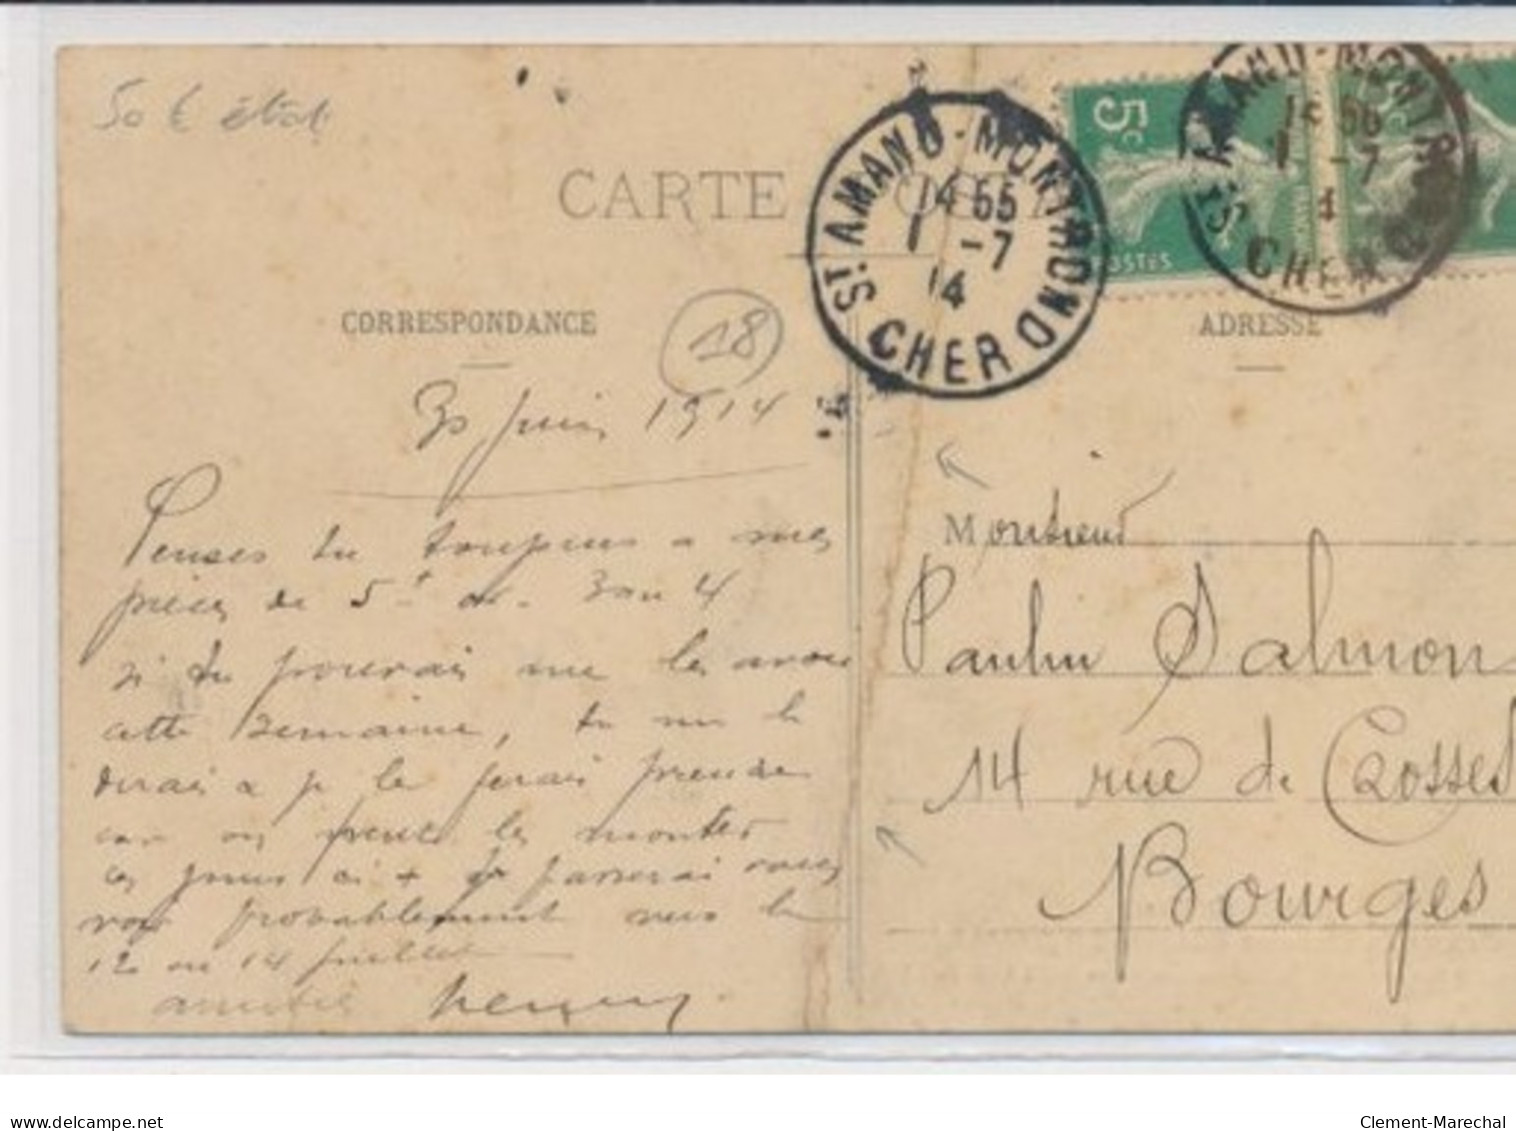 50 € état
CARTE
ST AMAND-MONTROND
14 55
1 -7
14
CHER
5c
POSTES
ST AMAND-MONTROND
1 -7
CHER
CORRESPONDANCE
18
ADRESSE
30 juin 1914
Penses tu toujours a mes
pièces de 5f or. 3 ou 4
si tu pouvais me les avoir
cette semaine, tu me le
dirais a je le ferais prendre
car on peut les monter
ces jours ci + je passerai vous
voir probablement vers le
12 ou 14 juillet
amitié
Monsieur
Paulin Salmon
14 rue de
Bourges
delcampe.net
Clement-Marechal